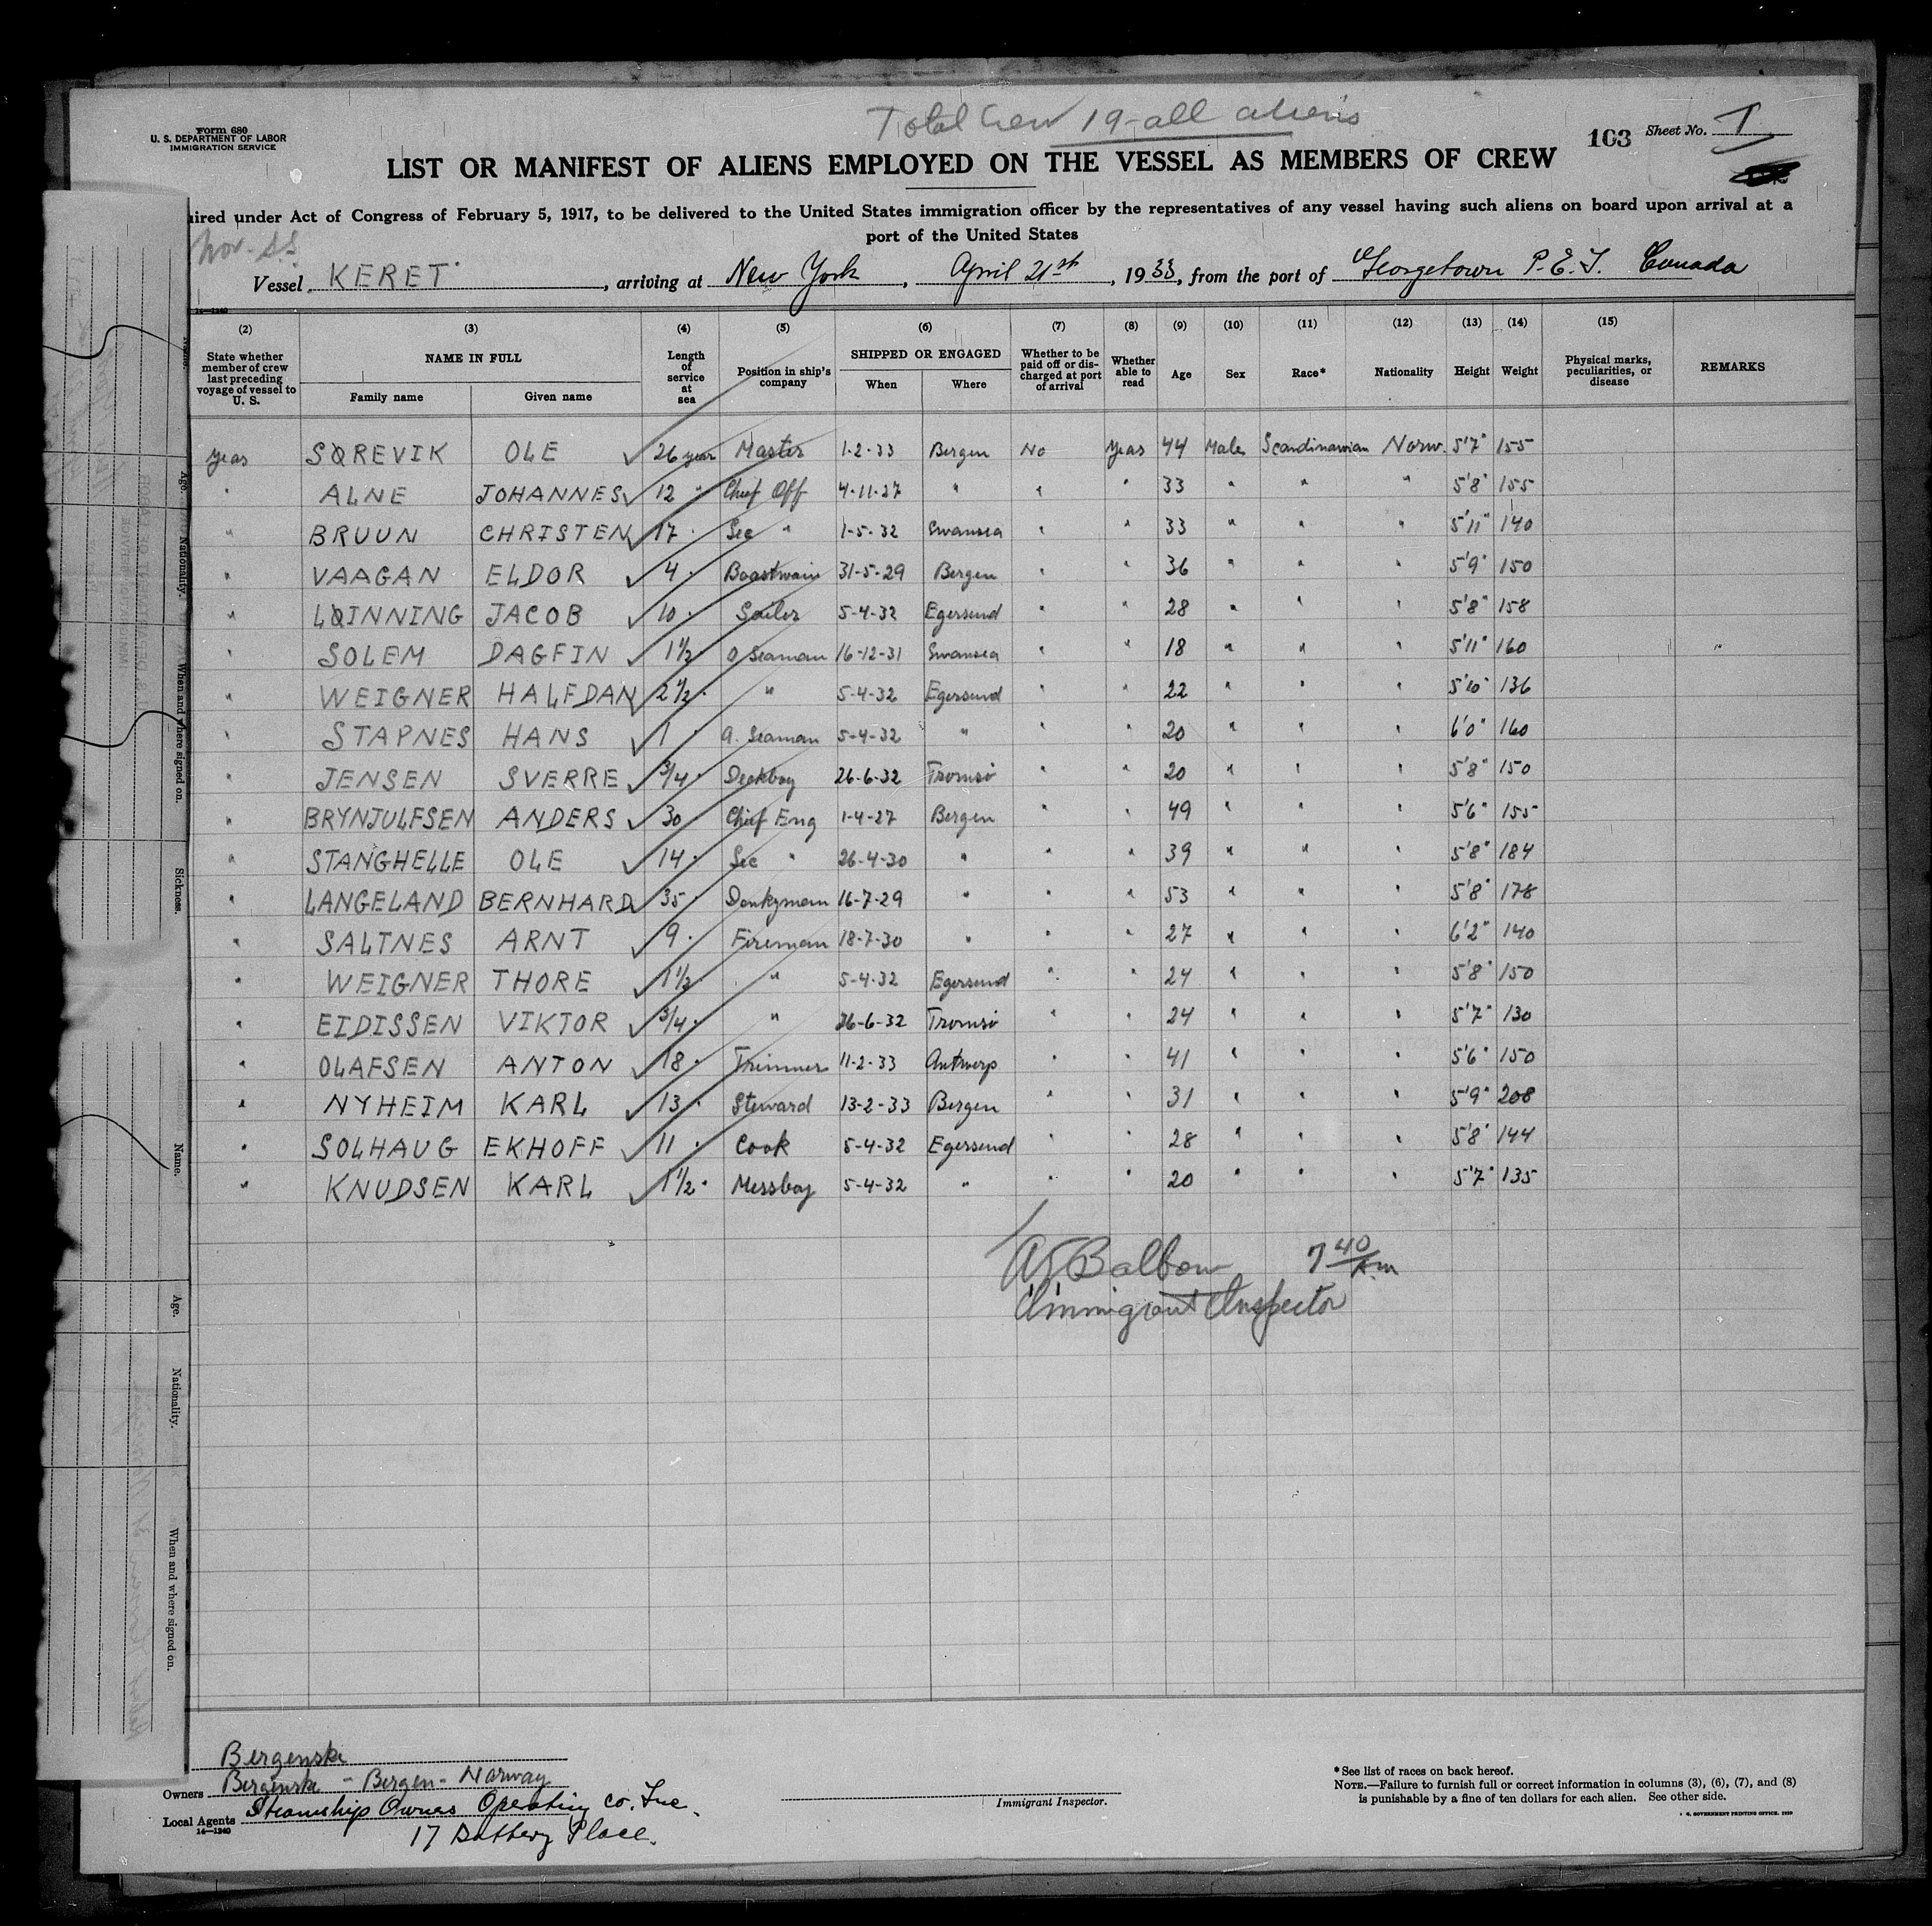 Total Crew 19 - all aliens
Form 680
U. S. DEPARTMENT OF LABOR
IMMIGRATION SERVICE
103 Sheet No. 1
LIST OR MANIFEST OF ALIENS EMPLOYED ON THE VESSEL AS MEMBERS OF CREW
uired under Act of Congress of February 5, 1917, to be delivered to the United States immigration officer by the representatives of any vessel having such aliens on board upon arrival at a
port of the United States
Nor. SS.
Vessel KERET, arriving at New York, April 21st, 1933, from the port of Georgetown P.E.I. Canada
14—1240
(2) (3) (4) (5) (6) (7) (8) (9) (10) (11) (12) (13) (14) (15)
State whether member of crew last preceding voyage of vessel to U. S. NAME IN FULL Family name Given name Length of service at sea Position in ship's company SHIPPED OR ENGAGED When Where Whether to be paid off or discharged at port of arrival Whether able to read Age Sex Race* Nationality Height Weight Physical marks, peculiarities, or disease REMARKS
Yeas SØREVIK OLE ✓ 26 year Master 1-2-33 Bergen No Yeas 44 Male Scandinavian Norw. 5'7" 155
" ALNE JOHANNES ✓ 12 " Chief Off 4-11-27 " " " 33 " " " 5'8" 155
" BRUUN CHRISTEN ✓ 17 " Sec " 1-5-32 Swansea " " 33 " " " 5'11" 140
" VAAGAN ELDOR ✓ 4 " Boastwain 31-5-29 Bergen " " 36 " " " 5'9" 150
" LØINNING JACOB ✓ 10 " Sailor 5-4-32 Egersund " " 28 " " " 5'8" 158
" SOLEM DAGFIN ✓ 1½ O Seaman 16-12-31 Swansea " " 18 " " " 5'11" 160
" WEIGNER HALFDAN ✓ 2½ " " 5-4-32 Egersund " " 22 " " " 5'10" 136
" STAPNES HANS ✓ 1 " O. Seaman 5-4-32 " " " 20 " " " 6'0" 160
" JENSEN SVERRE ✓ 3/4 " Deckboy 26-6-32 Tromsö " " 20 " " " 5'8" 150
" BRYNJULFSEN ANDERS ✓ 30 Chief Eng 1-4-27 Bergen " 49 " " " 5'6" 155
" STANGHELLE OLE ✓ 14 " Sec " 26-4-30 " " " 39 " " " 5'8" 184
" LANGELAND BERNHARD ✓ 35 " Donkyman 16-7-29 " " " 53 " " " 5'8" 178
" SALTNES ARNT ✓ 9 " Fireman 18-7-30 " " " 27 " " " 6'2" 140
" WEIGNER THORE ✓ 1½ " 5-4-32 Egersund " " 24 " " " 5'8" 150
" EIDISSEN VIKTOR ✓ 3/4 " " 26-6-32 Tromsö " " 24 " " " 5'7" 130
" OLAFSEN ANTON ✓ 18 " Trimmer 11-2-33 Antwerp " " 41 " " " 5'6" 150
" NYHEIM KARL ✓ 13 " Steward 13-2-33 Bergen " " 31 " " " 5'9" 208
" SOLHAUG EKHOFF ✓ 11 " Cook 5-4-32 Egersund " " 28 " " " 5'8" 144
" KNUDSEN KARL ✓ 1½ " Messboy 5-4-32 " " " 20 " " " 5'7" 135
7 40/Am
Immigrant Inspector
Age. Nationality. When and where signed on. Sickness.
Name. Age. Nationality. When and where signed on.
Bergenske
Owners Bergenske - Bergen - Norway
Local Agents Steamship Owners Operating Co. Inc.
14—1240
17 Battery Place.
Immigrant Inspector.
* See list of races on back hereof.
NOTE.—Failure to furnish full or correct information in columns (3), (6), (7), and (8)
is punishable by a fine of ten dollars for each alien. See other side.